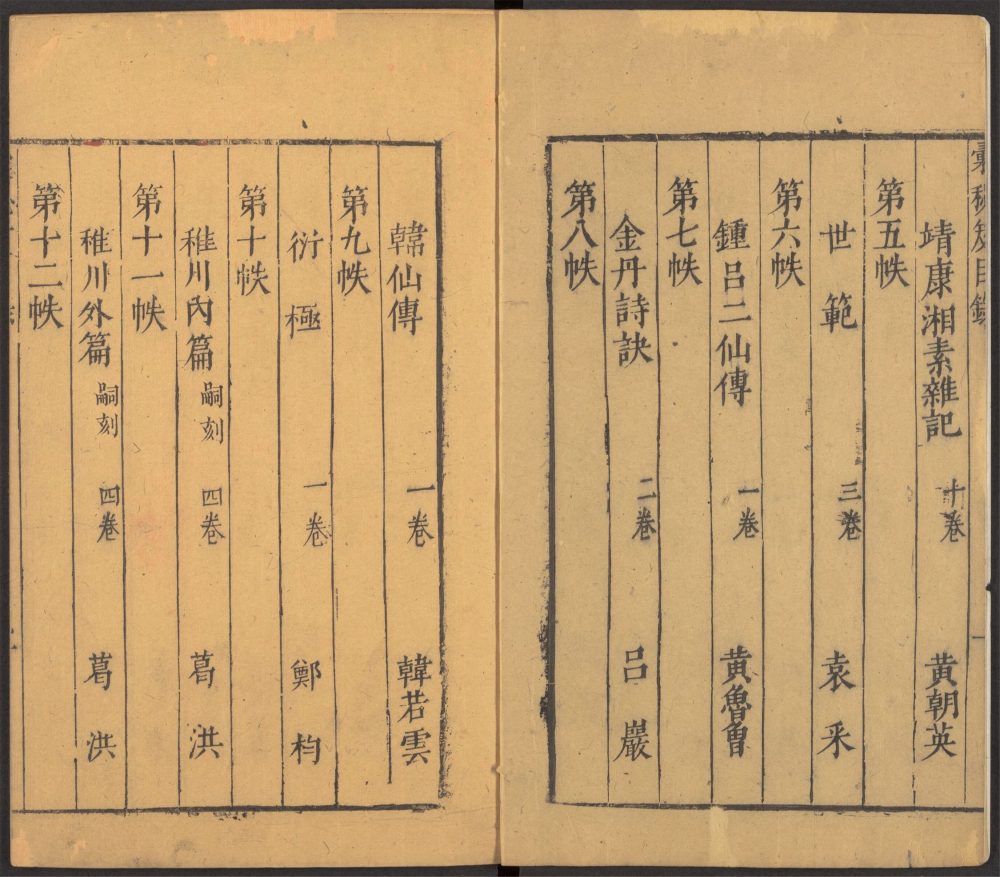 彙秘笈目錄 一
靖康湘素雜記 十卷 黃朝英
第五帙
世範 三卷 袁采
第六帙
鍾呂二仙傳 一卷 黃魯曾
第七帙
金丹詩訣 二卷 呂巖
第八帙
韓仙傳 一卷 韓若雲
第九帙
衍極 一卷 鄭杓
第十帙
稚川內篇 嗣刻 四卷 葛洪
第十一帙
稚川外篇 嗣刻 四卷 葛洪
第十二帙